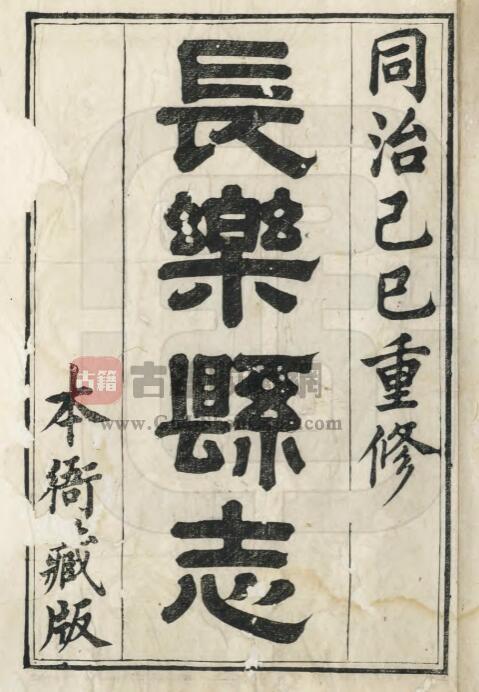 同治己巳重修
長樂縣志
本衙藏版
古籍